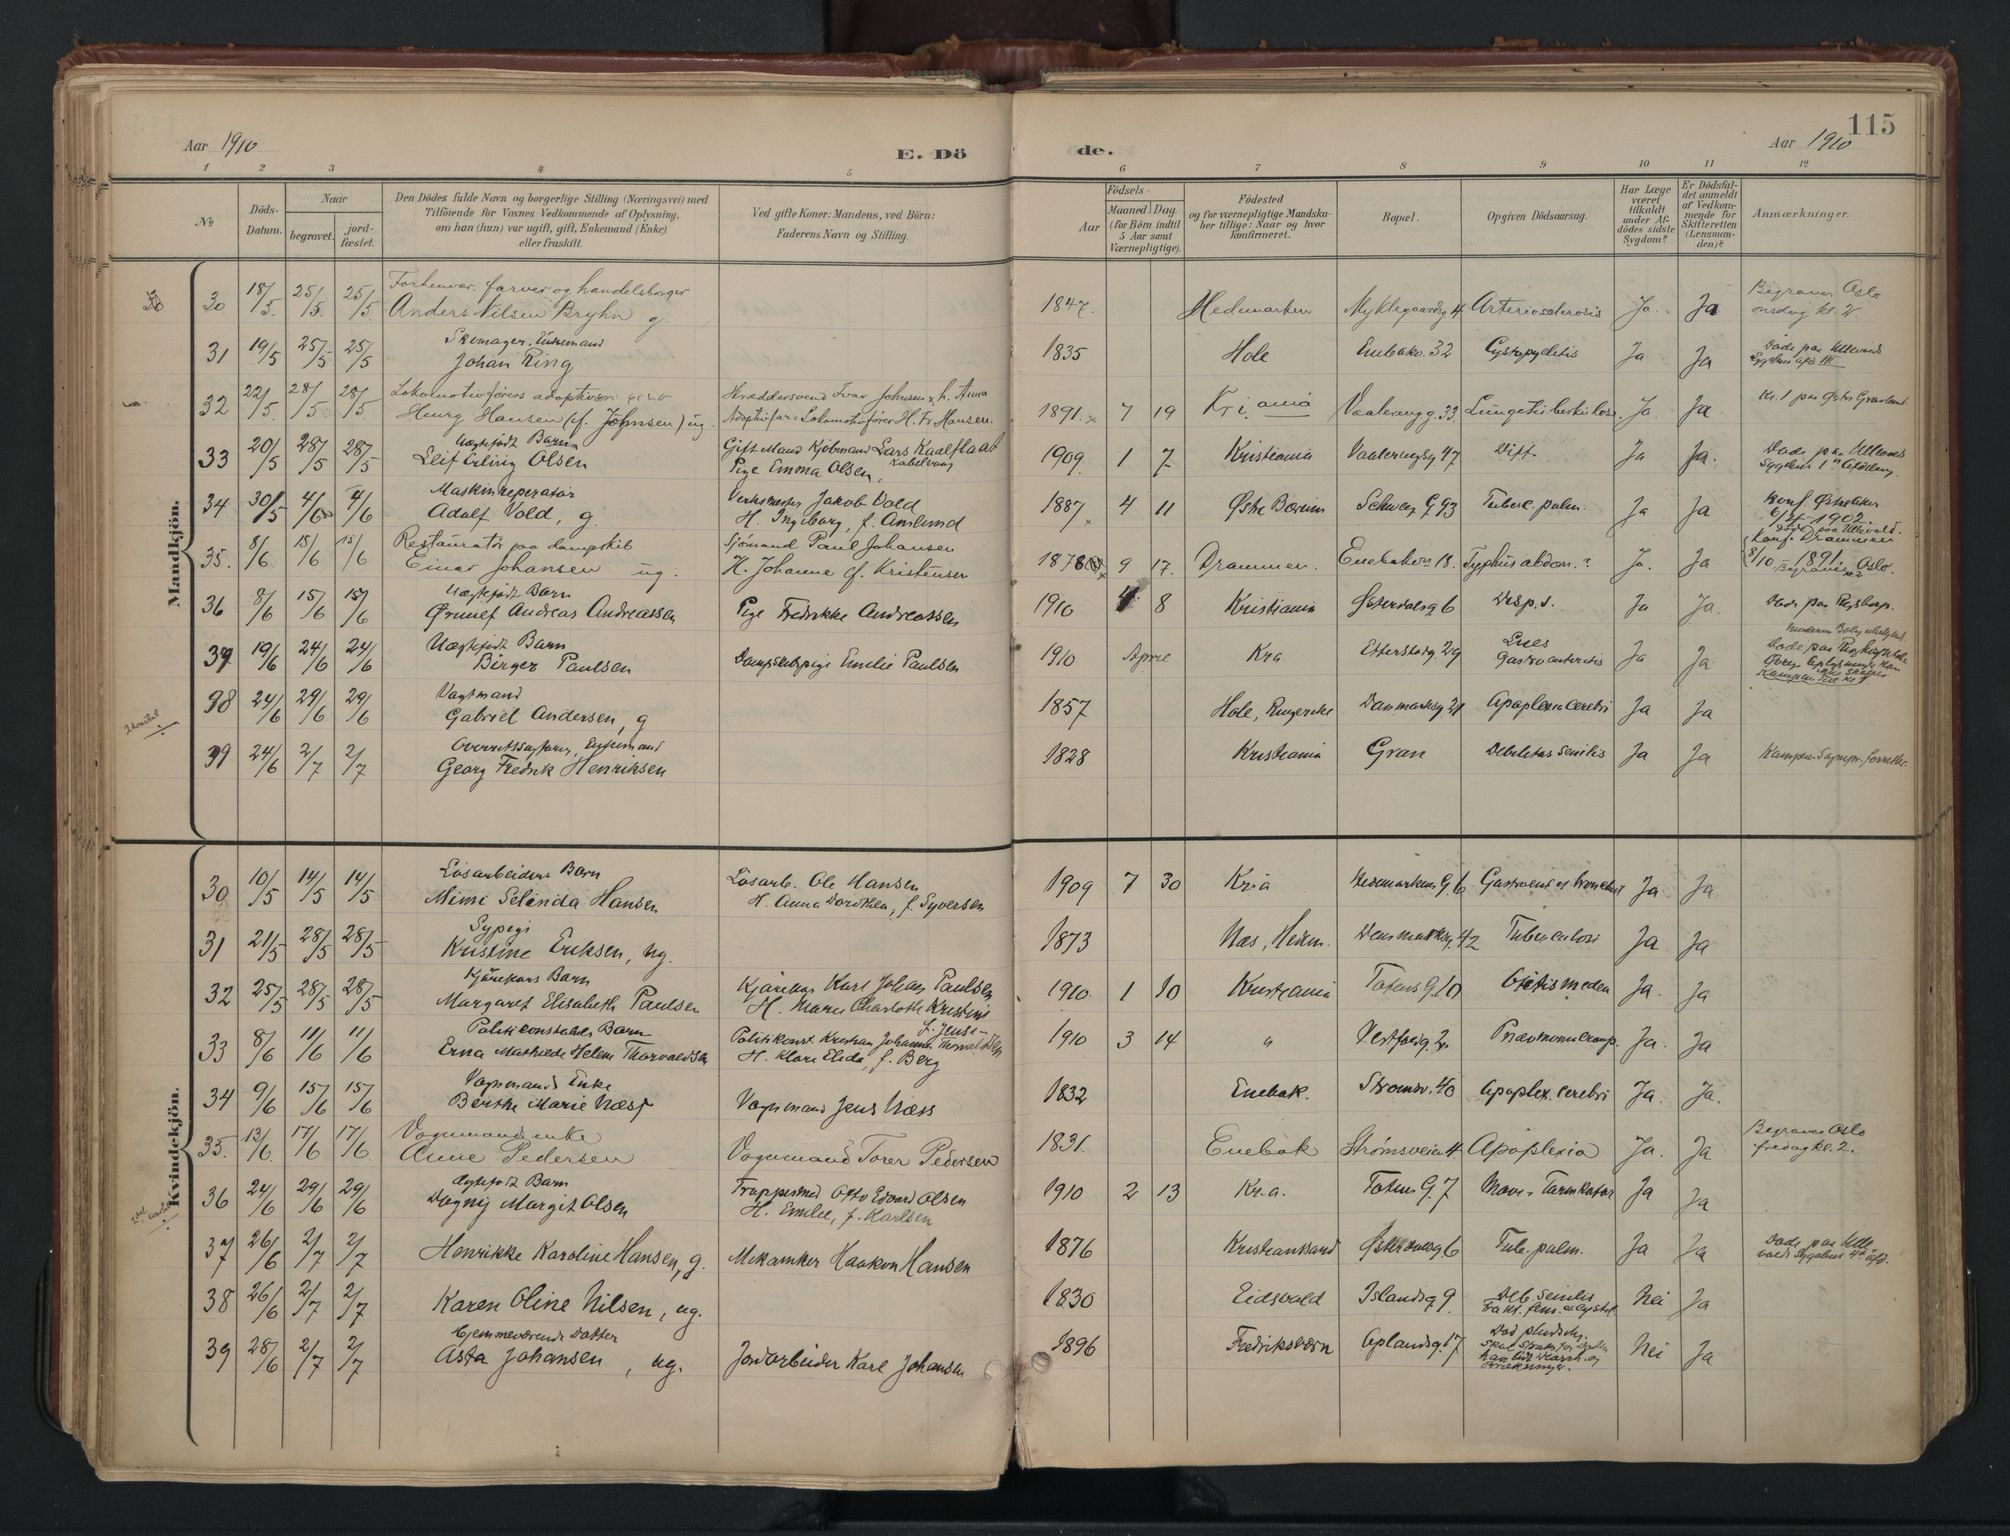 115
Aar 1910
E. Dö
de.
Aar 1910
1 2 3 4 5 6 7 8 9 10 11 12
No
Döds-Datum.
Naar
begravet.
jord-fæstet.
Den Dödes fulde Navn og borgerlige Stilling (Næringsvei) med
Tilföiende for Voxnes Vedkommende af Oplysning,
om han (hun) var ugift, gift, Enkemand (Enke)
eller fraskilt.
Ved gifte Koner: Mandens, ved Börn:
Faderens Navn og Stilling.
Aar
Födsels-
Maaned Dag
(for Börn indtil
5 Aar samt
Værnepligtige).
Födested
og for værnepligtige Mandska-
ber tillige: Naar og hvor
konfirmeret.
Bopæl.
Opgiven Dödsaarsag.
Har Læge
været
tilkaldt
under Af-
dödes sidste
Sygdom?
Er Dödsfal-
det anmeldt
af Vedkom-
mende for
Skifteretten
(Lensman-
den)?
Anmærkninger.
Mandkjön.
30 18/5 25/5 25/5 Forhenvær. farver og handelsborger
Anders Nilsen Bryhn g 1847 Hedemarken Myklegaardsg 4 Arteriosclerosis Ja. Ja Begraves Oslo
onsdag kl. 2.
31 19/5 25/5 25/5 Skomager, Enkemand
Johan Ring 1835 Hole Enebakv. 32 Cystopyelitis Ja Ja Døde paa Ullevaal
Sygehus afd III
32 22/5 28/5 28/5 Lokomotivførers adoptivsøn
Henry Hansen (f. Johnsen) ug. Skræddersvend Ivar Johnsen, h. Anna
Adoptivfar: Lokomotivfører H. Fr. Hansen. 1891 7 19 Kr.ania Vaalerengg. 33. Lungetuberkulose Ja. Ja
33 20/5 28/5 28/5 Uægtefødt Barn
Leif Erling Olsen Gift Mand Kjøbmand Lars Kaalflaat
Pige Emma Olsen, 1909 1 7 Kristiania Vaalerengg 47 Dift. Ja Ja. Døde paa Ullevaal
Sygehus 1ste Afdeling
34 30/5 4/6 4/6 Maskinreperatør
Adolf Vold, g. Verksmester Jakob Vold
H. Ingeborg, f. Amlund 1887 4 11 Østre Bærum Schweig. G. 93 Tuberc. pulm. Ja Ja Konf. Østre Aker
1902
35. 8/6 15/6 15/6 Restauratør paa dampskib
Einar Johansen ug. Sjømand Paul Johansen
H. Johanne f. Kristensen 9 17. Drammen. Enebakvn 18. Typhus abdom. ? Ja. Ja Konf. Drammen
8/10 1891. Begraves Oslo.
36 8/6 15/6 15/6 Uægtefødt Barn
Ørnulf Andreas Andreassen Pige Fredrikke Andreassen 1910 4 8 Kristiania Østerdalsg 6 Desp. s. Ja Ja.
37 19/6 24/6 24/6 Uægtefødt Barn
Birger Paulsen Pige Emilie Paulsen 1910 April Kra Etterstadg. 29 Lues
Gastroenteritis Ja Ja
38 24/6 29/6 29/6 Vognmand
Gabriel Andersen, g 1857 Hole, Ringerike Danmarksg 21 Apoplexia cerebri Ja Ja
39 24/6 2/7 2/7 Overretssagfører, Enkemand
Georg Fredrik Henriksen 1828 Kristiania Gran Debilitas senilis Ja Ja Kampens Sognepr. forretter.
Kvindekjön.
30 10/5 14/5 14/5 Løsarbeiders Barn
Mimi Selinda Hansen Løsarb. Ole Hansen
H. Anna Dorothea, f. Syversen 1909 7 30 Kria Hedemarkens G. 6 Gastroent. et bronchit Ja Ja
31 21/5 28/5 28/5 Sypige
Kristine Eriksen, ug. 1873 Næs, Hedem. Danmarksg. 42 Tuberculosis Ja Ja
32 25/5 28/5 28/5 Kjørekars Barn
Margaret Elisabeth Paulsen Kjørekar Karl Johan Paulsen
H. Marie Charlotte Kristine
f. Jense- 1910 1 10 Kristiania Totens G. 10 Otitis media Ja. Ja
33 8/6 11/6 11/6 Politikonstabels Barn
Erna Mathilde Helene Thorvaldsen Politikonst. Kristian Johannes Thorvaldsen
H. Klara Elida, f. Berg 1910 3 14 " Vestfoldg. 2 Pnævmoni croup. Ja. Ja
34 9/6 15/6 15/6 Vognmands Enke
Berthe Marie Næss Vognmand Jens Næss 1832 Enebak. Strømsv. 40 Apoplex. cerebri Ja. Ja.
35. 13/6 17/6 17/6 Vognmandsenke
Anne Pedersen Vognmand Torer Pedersen 1831. Enebak Strømsveien 4. Apoplexia Ja. Ja Begraves Oslo
fredag kl. 2.
36 24/6 29/6 29/6 Ægtefødt Barn
Dagny Margit Olsen Otto Edvard Olsen
H. Emilie, f. Karlsen 1910 2 13 Kr.a. Totens G. 7 Mave- Tarmkatar Ja Ja
37 26/6 2/7 2/7 Henrikke Karoline Hansen, g. Mekaniker Haakon Hansen 1876 Kristiansand Østerdalsg 6 Tub. pulm. Ja Ja Døde paa Ulle-
vaals Sygehus 4de afd.
38 26/6 2/7 2/7 Karen Oline Nilsen, ug. 1830 Eidsvold Islandsg 9. Deb. senilis
Frakt. fem. Nei Ja
39 28/6 2/7 2/7 Hjemmeværende Datter
Asta Johansen, ug. Jordarbeider Karl Johansen 1896 Fredriksværn Oplandsg. 17 Død pludselig. Nei Ja